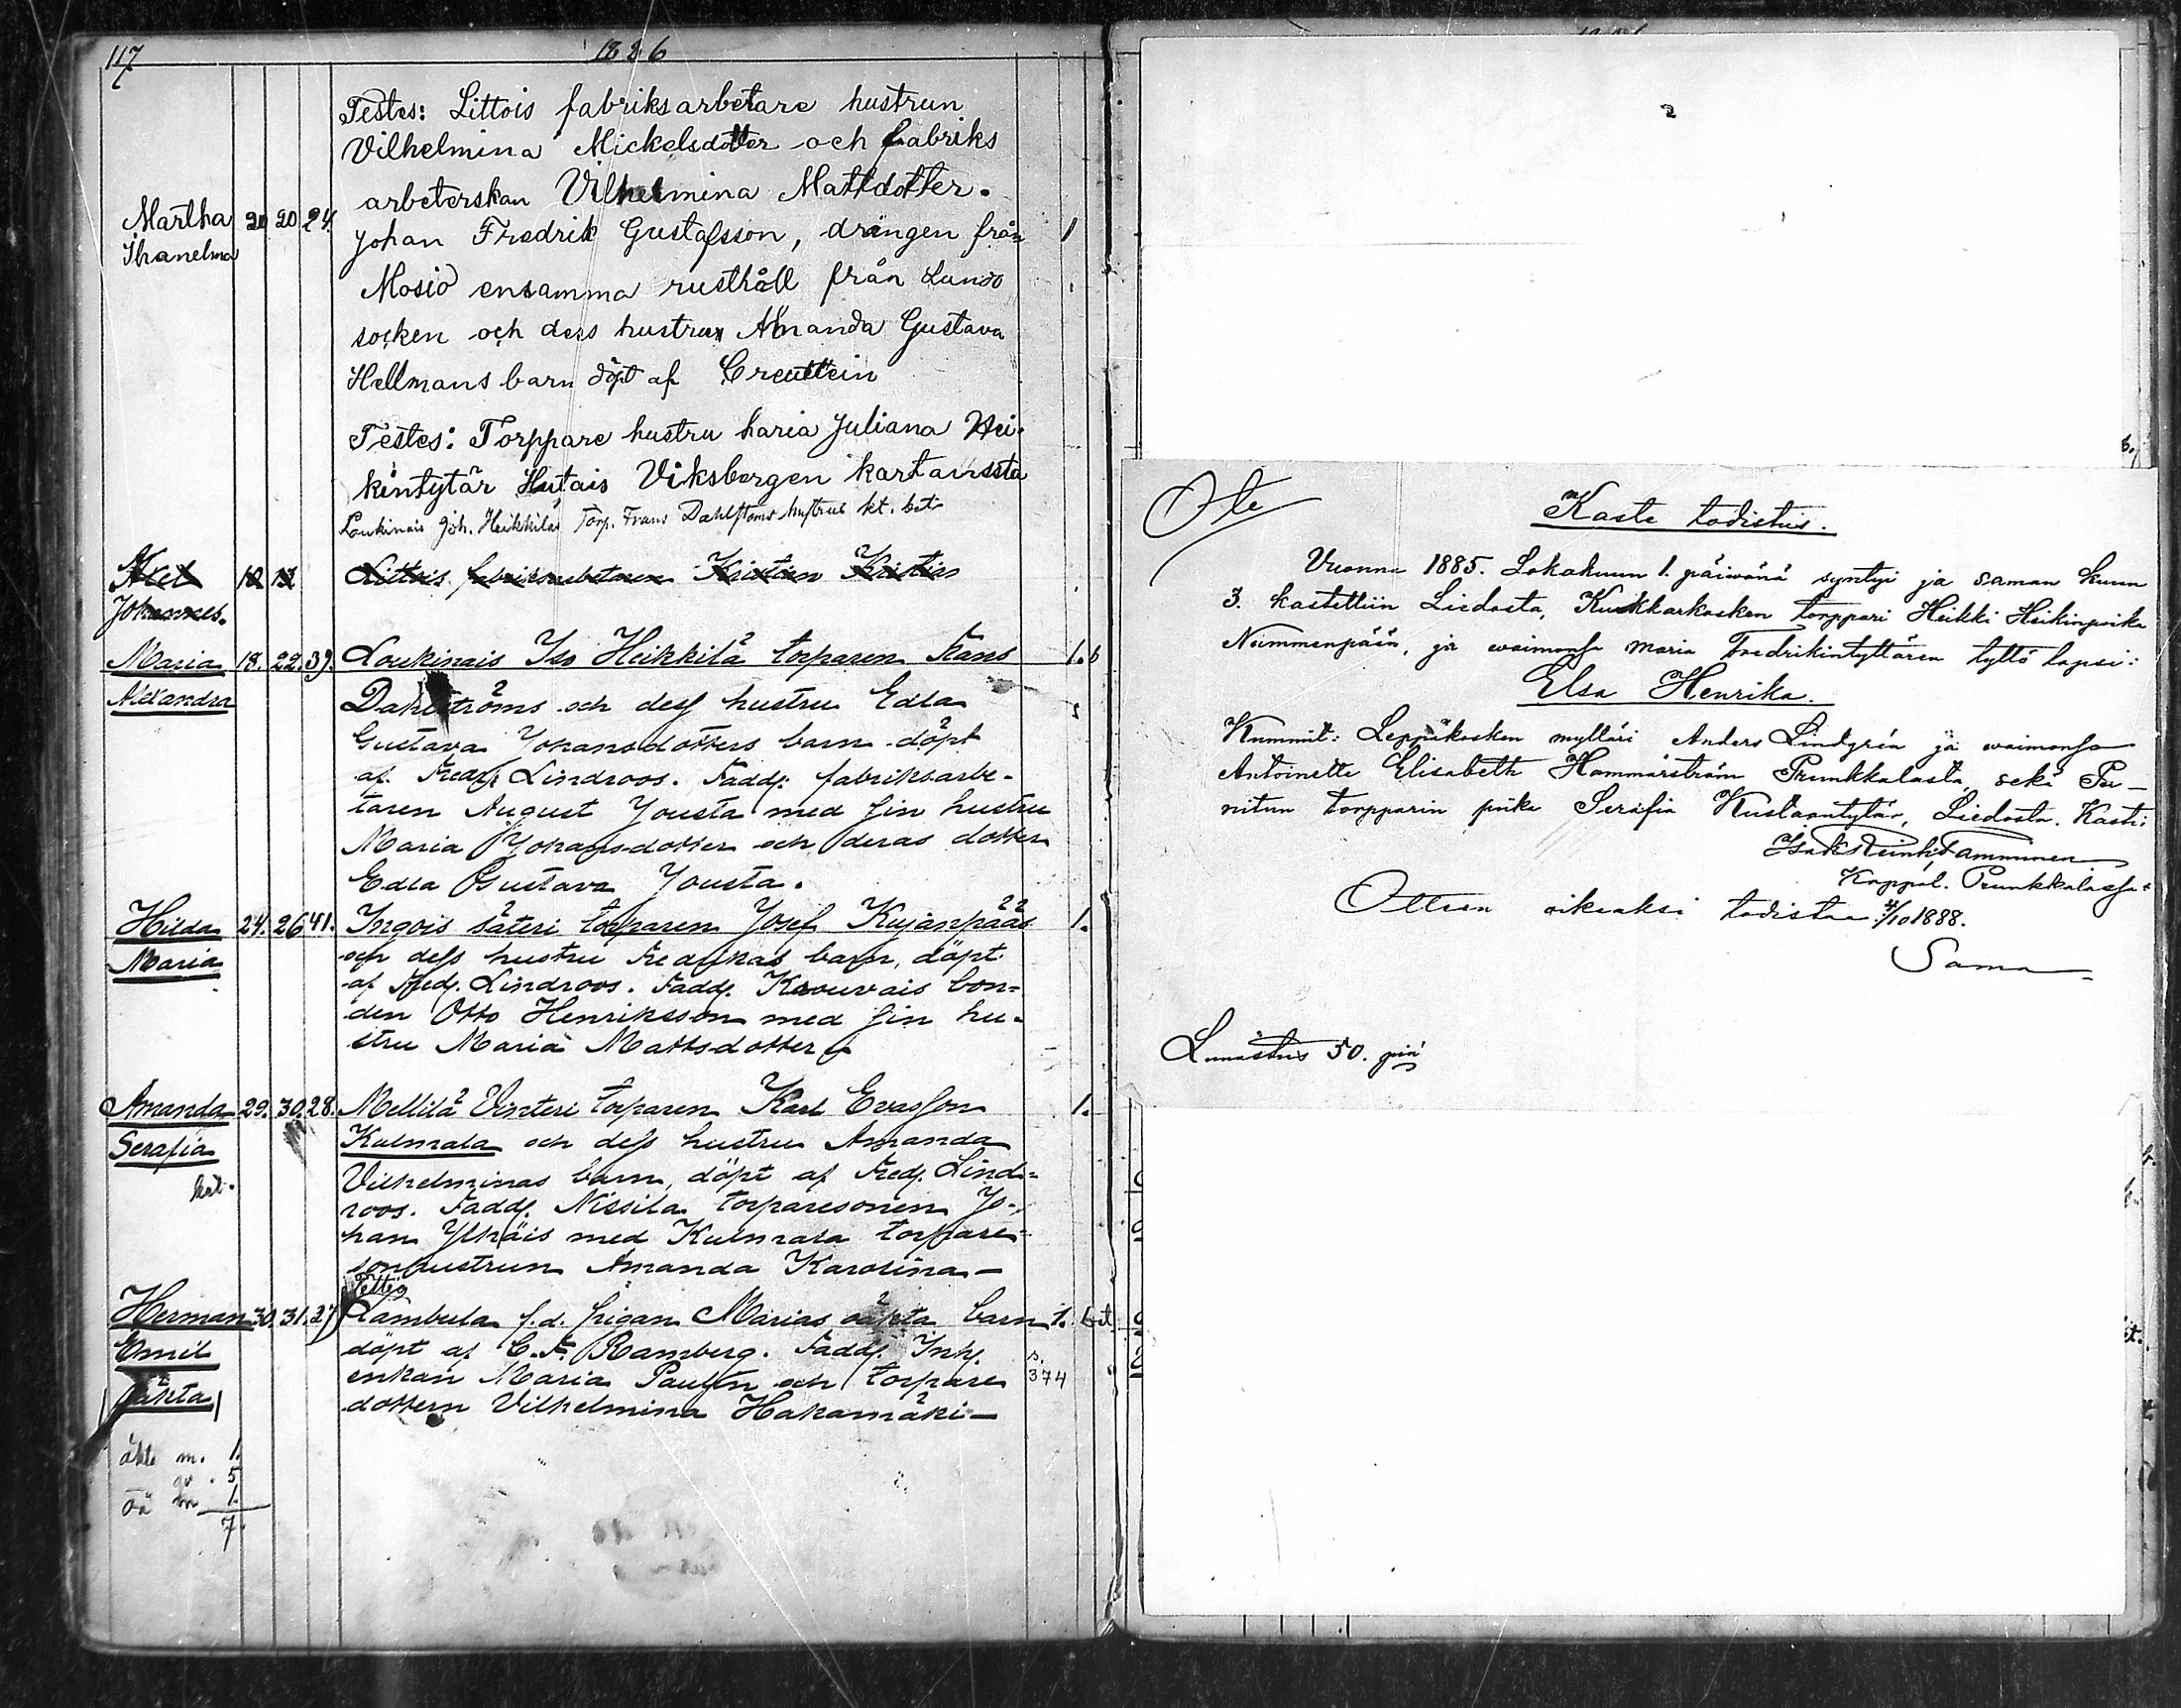 117
1886
Testes: Littois fabriksarbetare hustrun
Vilhelmina Mickelsdotter och fabriks
arbeterskan Vilhelmina Mattdotter.
Martha 20 20 24. Johan Fredrik Gustafsson, drängen från 1
Mosio ensamma rusthåll från Lundo
socken och dess hustrun Amanda Gustava
Hellmans barn döpt af Creutlein
Testes: Torppare hustru Maria Juliana Hei-
kintytär Hutais Viksbergen kartanosta
Loukinais Joh. Heikkilas Torp. Frans Dahlstoms hustrus kt. bet.
Axel 12 12 Littois fabriksarbetaren Kristian
Johannes.
Maria 18. 22. 39. Loukinais Iso Heikkilä torparen Frans 1. b
Alexandra Dahlströms och dess hustru Edla
Gustava Johansdotters barn döpt
af Fredr. Lindroos. Fadd. fabriksarbe-
taren August Jousta med sin hustru
Maria Johansdotter och deras dotter
Edla Gustava Jousta.
Hilda 24. 26 41. Ingois säteri torparen Josef Kujanpääs 1.
Maria och dess hustru Fredrikas barn, döpt
af Fred. Lindroos. Fadd. Krouvais bon-
den Otto Henriksson med sin hu-
stru Maria Mattsdotter
Amanda 29. 30. 28. Mellilä Vinteri torparen Karl Evasson 1.
Serafia Kulmala och dess hustru Amanda
Vilhelminas barn, döpt af Fred. Lind-
roos. Fadd. Nissila torparesonen Jo-
han Ylhäis med Kulmala torpare-
sonhustrun Amanda Karolina
Herman 30. 31. 27 Lambula f.d. pigan Marias oäkta barn 1. bet
Emil döpt af C. F. Ramberg. Fadd. Inh. s.
oäkta enkan Maria och torpare 374
dottern Vilhelmina Hakamäki
äkta m. 1.
qv. 5
oä m 1.
7.
Ote
Kaste todistus.
Vuonna 1885. Lokakuun 1. päiwänä syntyi ja saman kuun
3. kastettiin Liedosta, Kukkarkosken torppari Heikki Heikinpoika
Nummenpään, ja waimonsa Maria Fredrikintyttären tyttö lapsi:
Elsa Henrika.
Kummit: Leppäkosken mylläri Anders Lindgrén ja waimonsa
Antoinette Elisabeth Hammarström Prunkkalasta, sekä Pu-
nitun torpparin piika Serafia Kustaantytär, Liedosta. Kasti:
Isak Reinh. Tamminen
Kappal. Prunkkalassa.
Otteen oikeaksi todistaa 4/10 1888.
Sama
Lunastus 50. piä